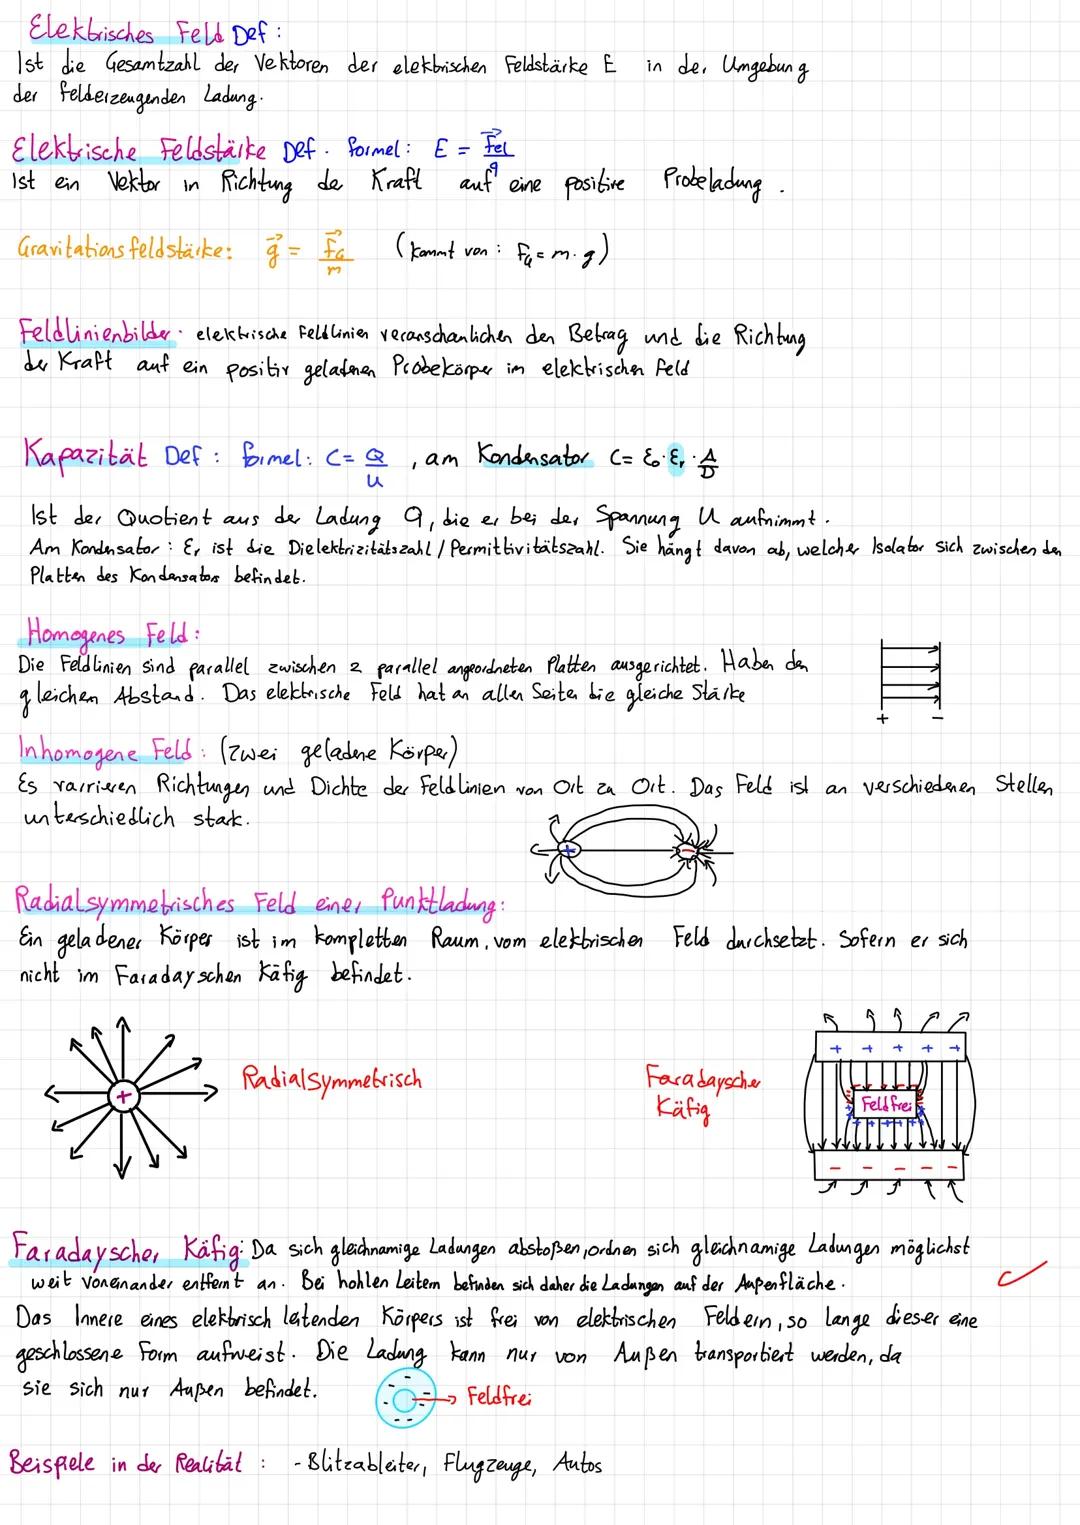 Elektrisches Feld Def:
Ist die Gesamtzahl der Vektoren der elektrischen Feldstärke E in der Umgebung
der felderzeugenden Ladung.
Elektrische Feldstärke Def. Formel: E = F⃗el/q
Ist ein Vektor in Richtung de Kraft auf eine positive Probeladung.
Gravitationsfeldstärke: g⃗ = F⃗G/m (kommt von: FG = m·g)
Feldlinienbilder: elektrische Feldlinien veranschaulichen den Betrag und die Richtung
der Kraft auf ein positiv geladenen Probekörper im elektrischen Feld
Kapazität Def: Formel: C = Q/U, am Kondensator C = ε₀·εr·A/D
Ist der Quotient aus der Ladung Q, die er bei der Spannung U aufnimmt.
Am Kondensator: εr ist die Dielektrizitätszahl / Permittivitätszahl. Sie hängt davon ab, welcher Isolator sich zwischen den
Platten des Kondensators befindet.
Homogenes Feld:
Die Feldlinien sind parallel zwischen 2 parallel angeordneten Platten ausgerichtet. Haben den
gleichen Abstand. Das elektrische Feld hat an allen Seiten die gleiche Stärke
+ −
Inhomogene Feld: (Zwei geladene Körper)
Es varrieren Richtungen und Dichte der Feldlinien von Ort zu Ort. Das Feld ist an verschiedenen Stellen
unterschiedlich stark.
+ −
Radialsymmetrisches Feld einer Punktladung:
Ein geladener Körper ist im kompletten Raum, vom elektrischen Feld durchsetzt. Sofern er sich
nicht im Faradayschen Käfig befindet.
+ + + + +
+ Radialsymmetrisch
Faradayscher
Käfig
Feldfrei
− − − − −
Faradayscher Käfig: Da sich gleichnamige Ladungen abstoßen, ordnen sich gleichnamige Ladungen möglichst
weit voneinander entfernt an. Bei hohlen Leitern befinden sich daher die Ladungen auf der Außenfläche.
Das Innere eines elektrisch leitenden Körpers ist frei von elektrischen Feldern, so lange dieser eine
geschlossene Form aufweist. Die Ladung kann nur von Außen transportiert werden, da
sie sich nur Außen befindet.
Feldfrei
Beispiele in der Realität: - Blitzableiter, Flugzeuge, Autos